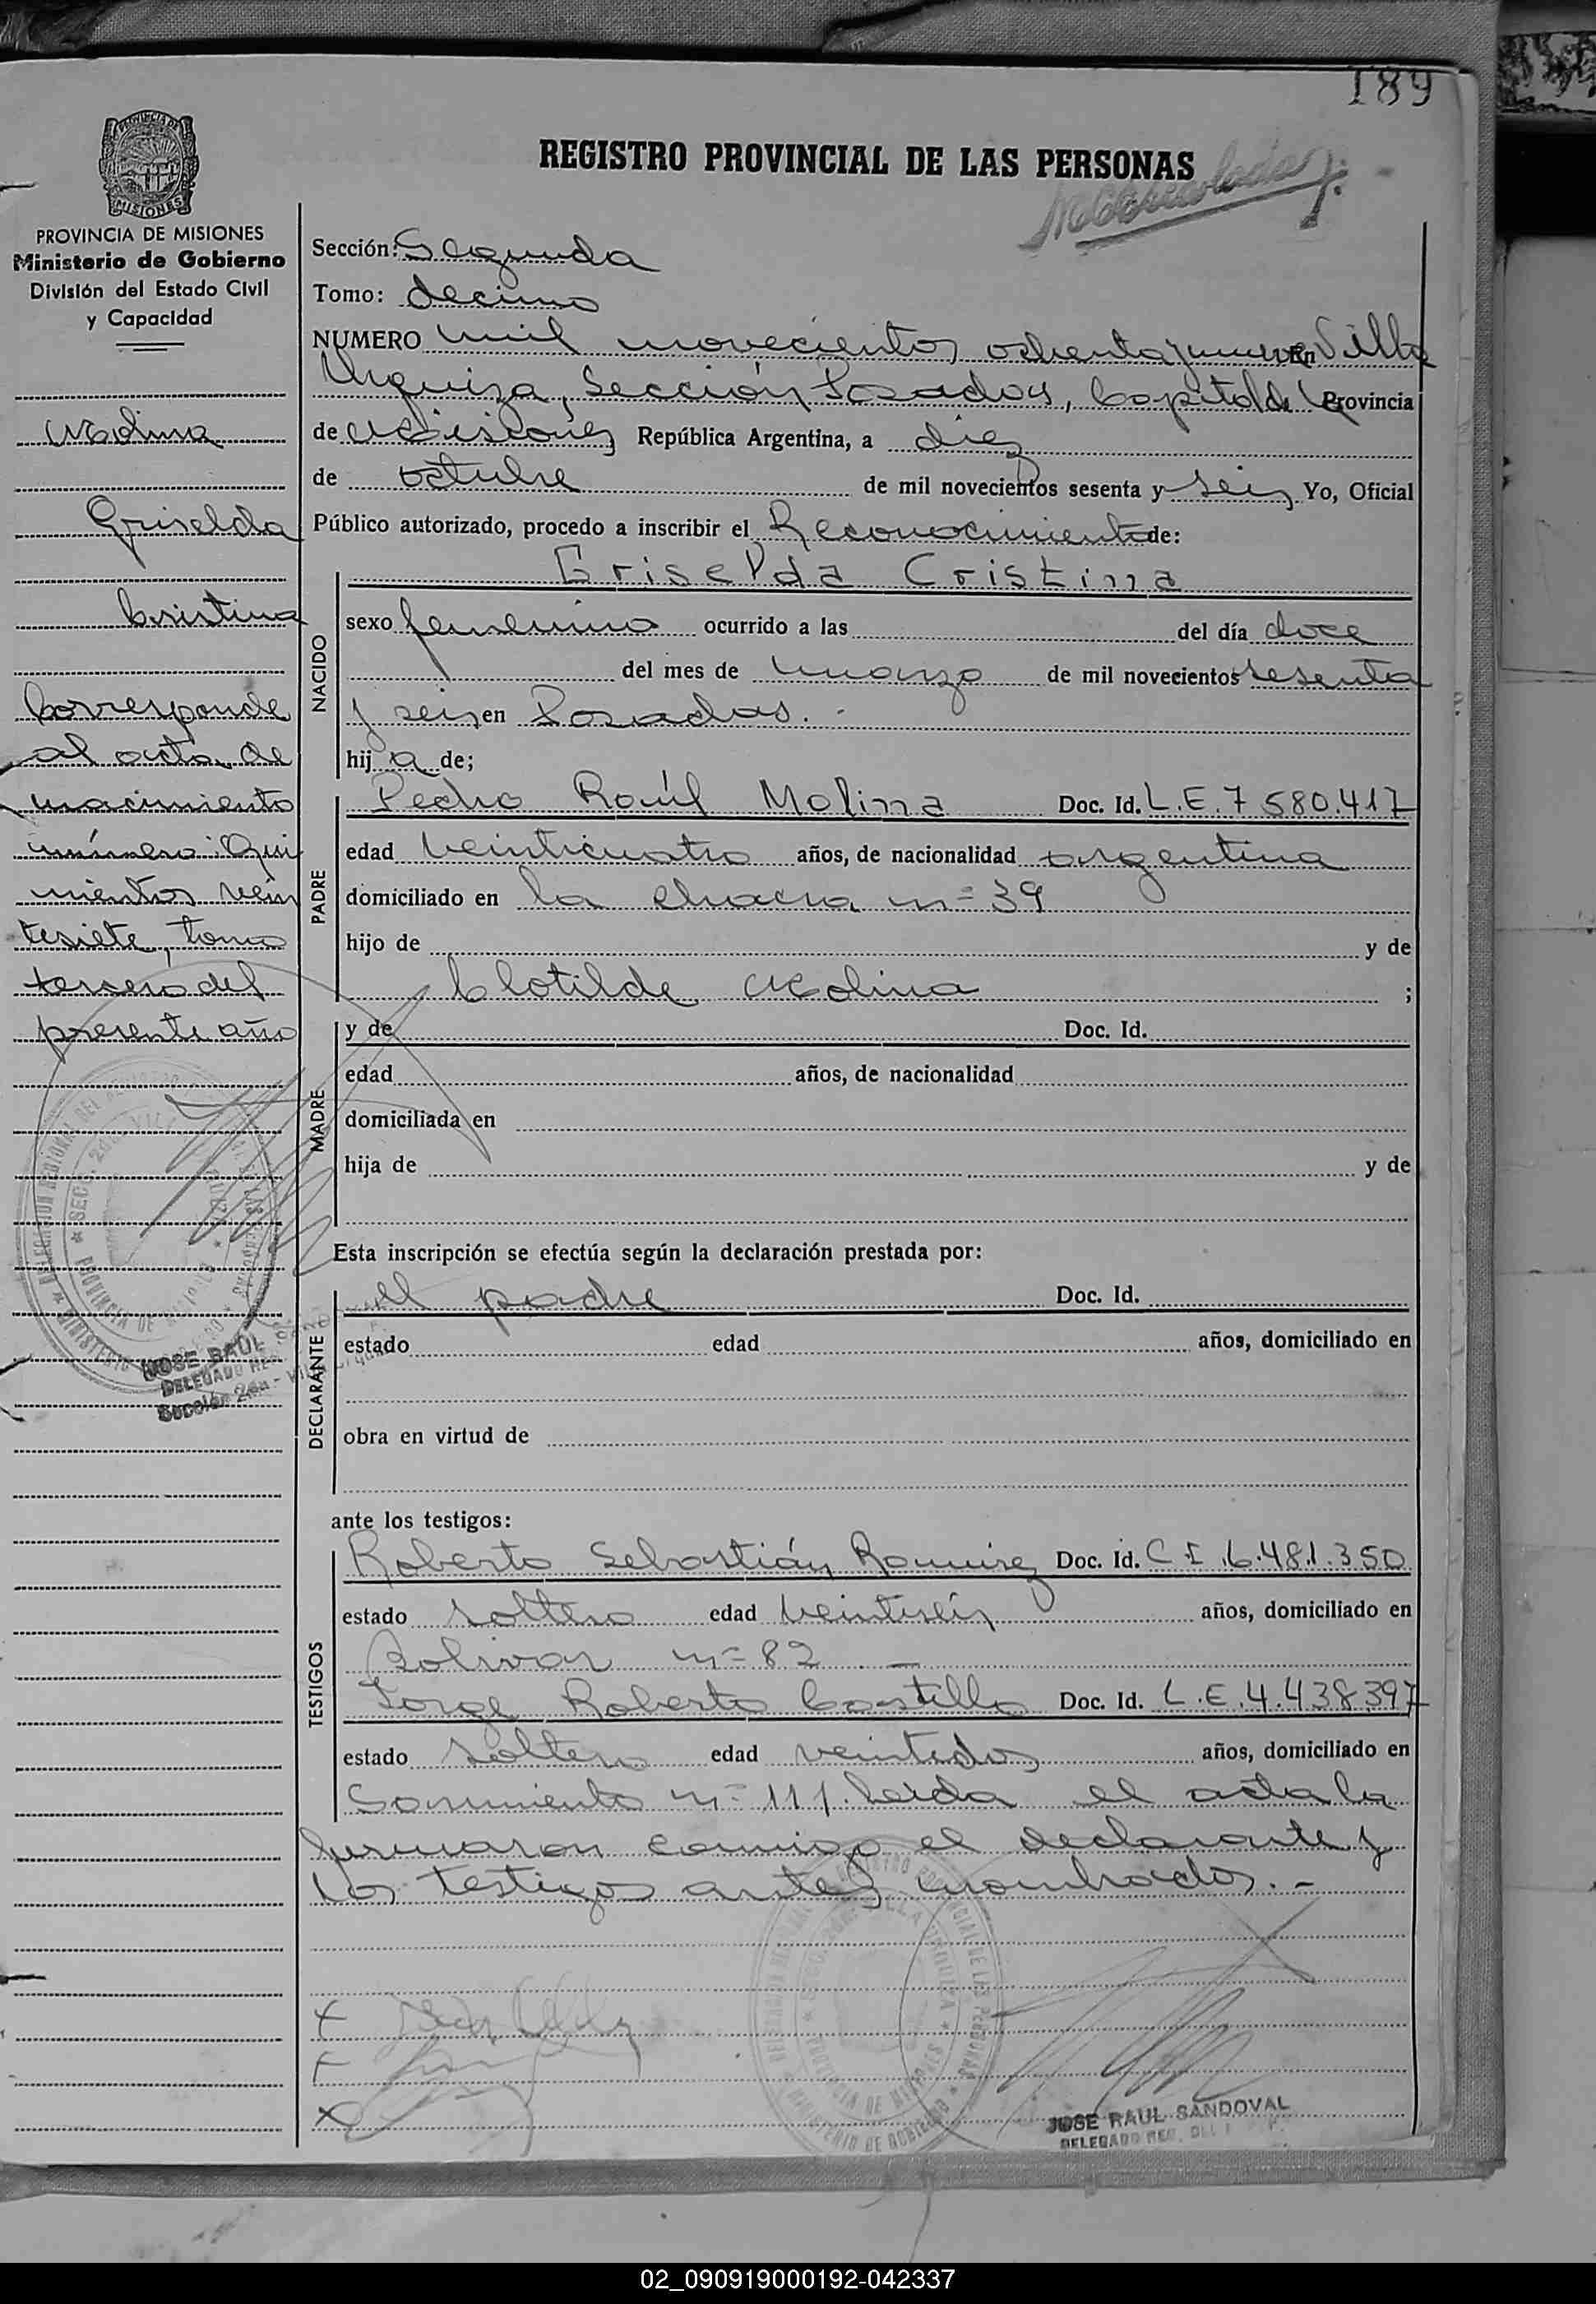 189
REGISTRO PROVINCIAL DE LAS PERSONAS
PROVINCIA DE MISIONES
Ministerio de Gobierno
División del Estado Civil
y Capacidad
Molina
Griselda
Cristina
Corresponde
al acta de
nacimiento
número: Qui
nientos vein
tesiete, tomo
tercero del
presente año
JOSE RAUL
DELEGADO
Sección 2da -
Sección: Segunda
Tomo: decimo
NUMERO mil novecientos ochenta y nueve En Villa
Urquiza, Sección Posadas, Capital de la Provincia
de Misiones República Argentina, a diez
de octubre de mil novecientos sesenta y seis Yo, Oficial
Público autorizado, procedo a inscribir el Reconocimiento de:
Griselda Cristina
NACIDO
sexo femenino ocurrido a las del día doce
del mes de marzo de mil novecientos sesenta
y seis en Posadas. -
hij a de;
PADRE
Pedro Raúl Molina Doc. Id. L.E. 7 580.417
edad veinticuatro años, de nacionalidad argentina
domiciliado en la chacra n= 39
hijo de y de
Clotilde Molina ;
MADRE
y de Doc. Id.
edad años, de nacionalidad
domiciliada en
hija de y de
Esta inscripción se efectúa según la declaración prestada por:
DECLARANTE
el padre Doc. Id.
estado edad años, domiciliado en
obra en virtud de
ante los testigos:
TESTIGOS
Roberto Sebastián Ramirez Doc. Id. C.I. 6.481.350
estado soltero edad veintiseis años, domiciliado en
Bolivar n= 82 -
Jorge Roberto Castillo Doc. Id. L.E. 4.438.397
estado soltero edad veintedos años, domiciliado en
Sarmiento n= 111. Leída el acta la
firmaron conmigo el declarante y
los testigos antes nombrados. -
JOSE RAUL SANDOVAL
DELEGADO REG.
02_090919000192-042337